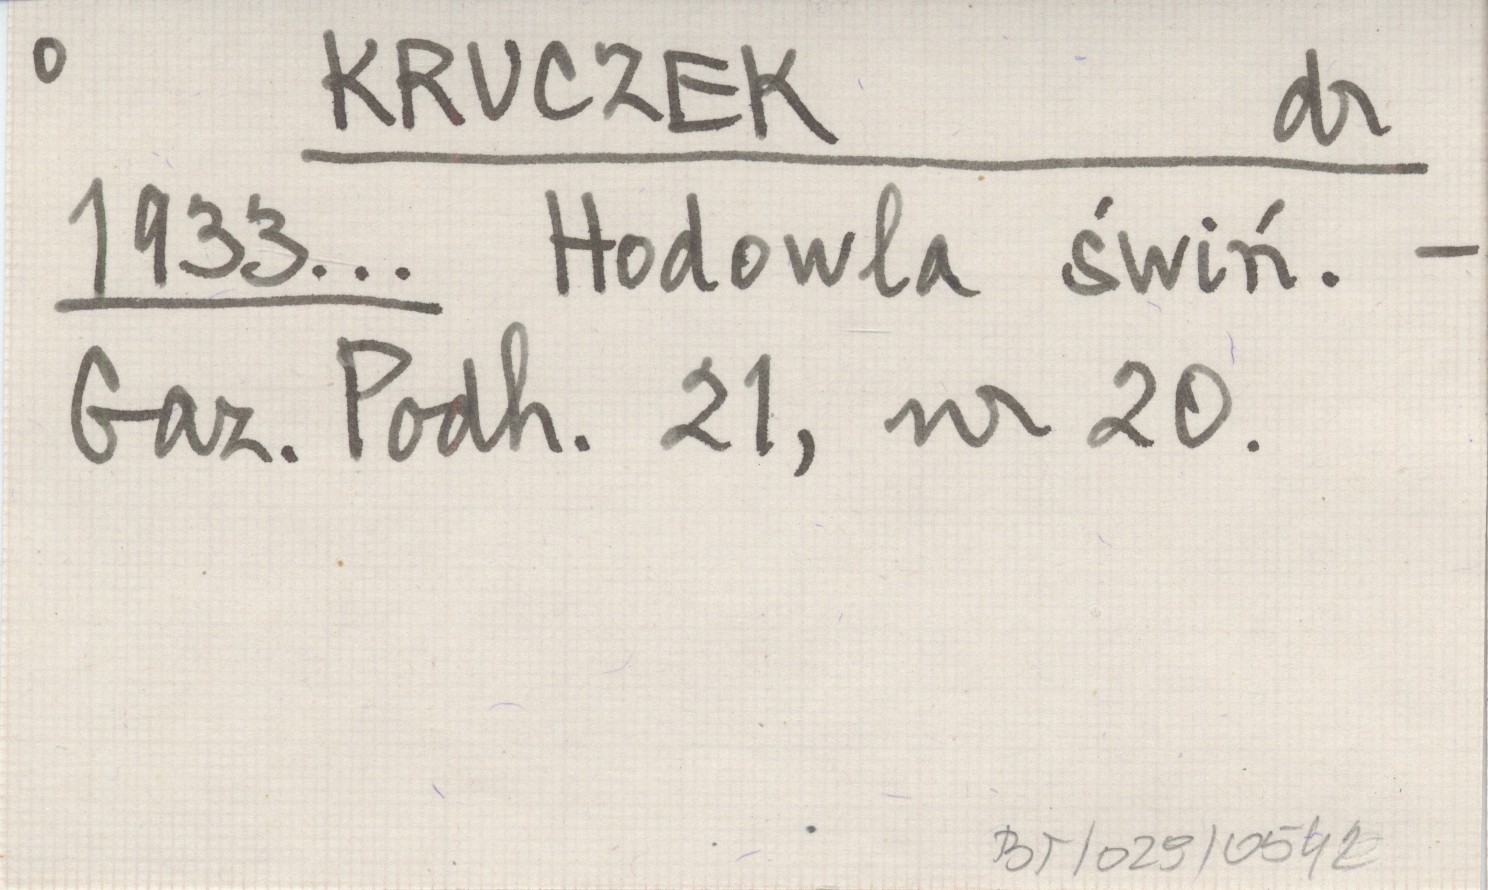 o KRUCZEK dr
1933... Hodowla świń. -
Gaz. Podh. 21, nr 20.
BT/029/0542